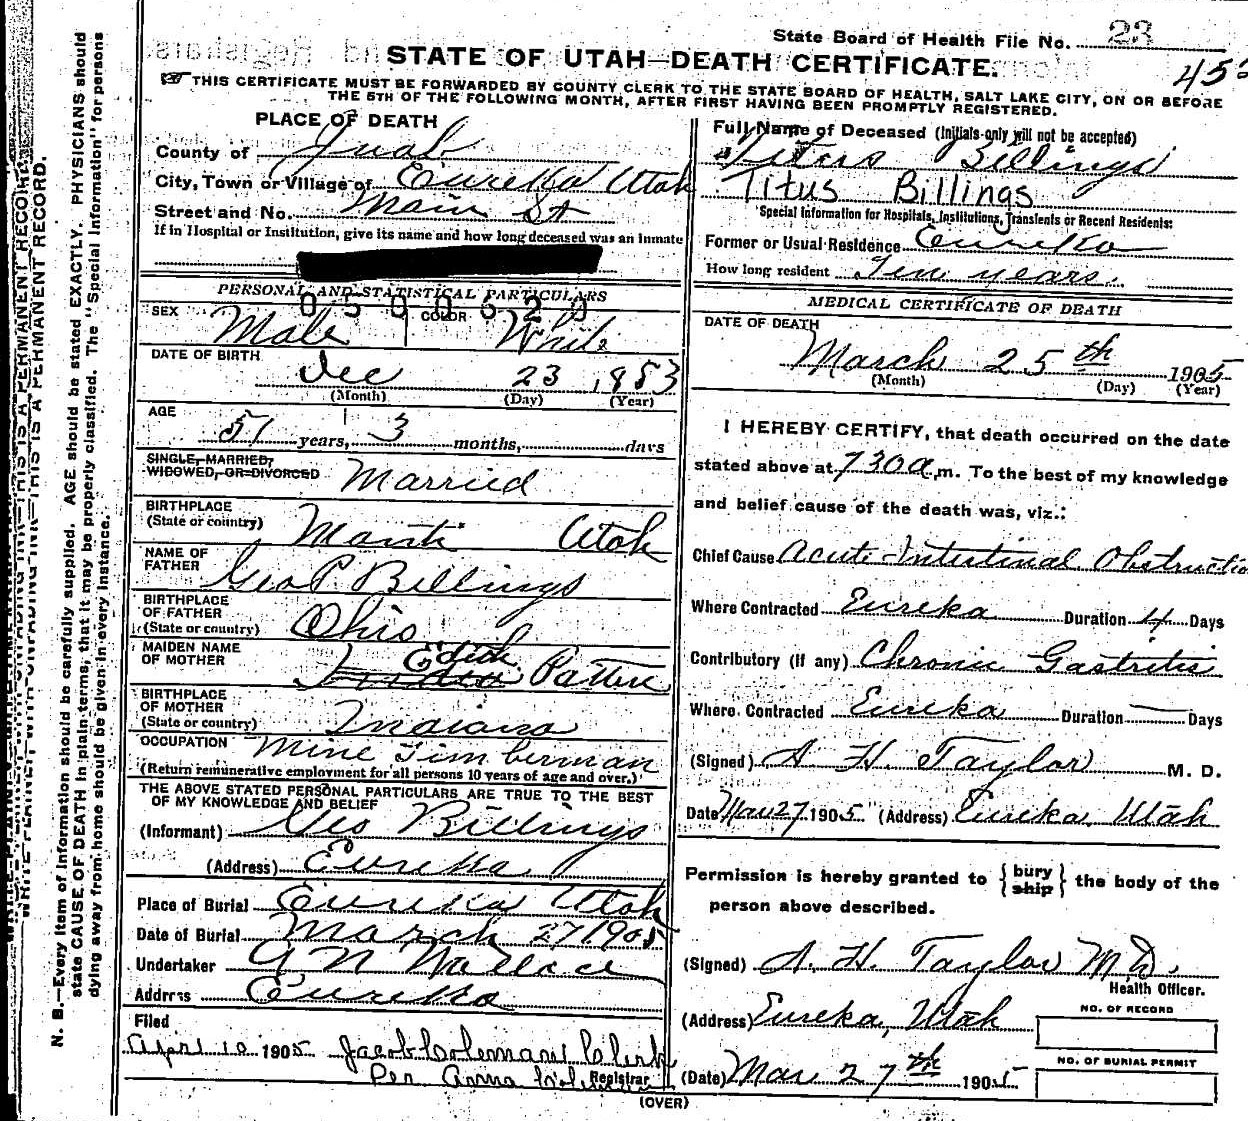 State Board of Health File No. 23
STATE OF UTAH—DEATH CERTIFICATE.
453
THIS CERTIFICATE MUST BE FORWARDED BY COUNTY CLERK TO THE STATE BOARD OF HEALTH, SALT LAKE CITY, ON OR BEFORE
THE 5TH OF THE FOLLOWING MONTH, AFTER FIRST HAVING BEEN PROMPTLY REGISTERED.
PLACE OF DEATH
County of Juab
City, Town or Village of Eureka Utah
Street and No. Main St
If in Hospital or Institution, give its name and how long deceased was an inmate
PERSONAL AND STATISTICAL PARTICULARS
SEX Male COLOR White
DATE OF BIRTH
Dec 23 1853
(Month) (Day) (Year)
AGE
51 years, 3 months, days
SINGLE, MARRIED,
WIDOWED, OR DIVORCED Married
BIRTHPLACE
(State or country) Manti Utah
NAME OF
FATHER Geo P Billings
BIRTHPLACE
OF FATHER
(State or country) Ohio
MAIDEN NAME
OF MOTHER Edith Patten
BIRTHPLACE
OF MOTHER
(State or country) Indiana
OCCUPATION Mine Timberman
(Return remunerative employment for all persons 10 years of age and over.)
THE ABOVE STATED PERSONAL PARTICULARS ARE TRUE TO THE BEST
OF MY KNOWLEDGE AND BELIEF
(Informant) Geo Billings
(Address) Eureka
Place of Burial Eureka Utah
Date of Burial March 27 1905
Undertaker G N Wallace
Address Eureka
Filed
April 10 1905 Jacob Coleman Clerk
Per Anna Coleman Registrar
Full Name of Deceased (Initials only will not be accepted)
Titus Billings
Titus Billings
Special Information for Hospitals, Institutions, Transients or Recent Residents:
Former or Usual Residence Eureka
How long resident Ten years.
MEDICAL CERTIFICATE OF DEATH
DATE OF DEATH
March 25th 1905
(Month) (Day) (Year)
I HEREBY CERTIFY, that death occurred on the date
stated above at 730 a.m. To the best of my knowledge
and belief cause of the death was, viz.:
Chief Cause Acute Intestinal Obstructio
Where Contracted Eureka Duration 4 Days
Contributory (if any) Chronic Gastritis
Where Contracted Eureka Duration — Days
(Signed) A. H. Taylor M. D.
Date Mar 27 1905 (Address) Eureka, Utah
Permission is hereby granted to {bury ship} the body of the
person above described.
(Signed) A. H. Taylor M.D.
Health Officer.
(Address) Eureka, Utah
NO. OF RECORD
NO. OF BURIAL PERMIT
(Date) Mar 27th 1905
(OVER)
N. B.—Every item of information should be carefully supplied. AGE should be stated EXACTLY. PHYSICIANS should
state CAUSE OF DEATH in plain terms, that it may be properly classified. The "Special Information" for persons
dying away from home should be given in every instance.